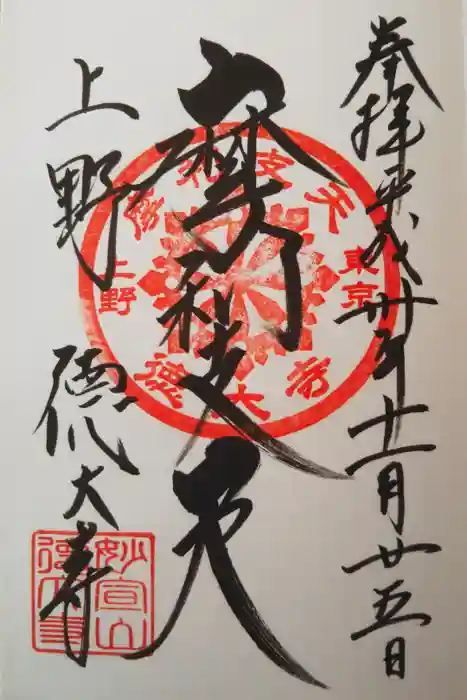 奉拝平成卅年十一月廿五日
摩利支天
上野徳大寺
摩利支天
東京
上野
徳大寺
妙宣山
徳大寺